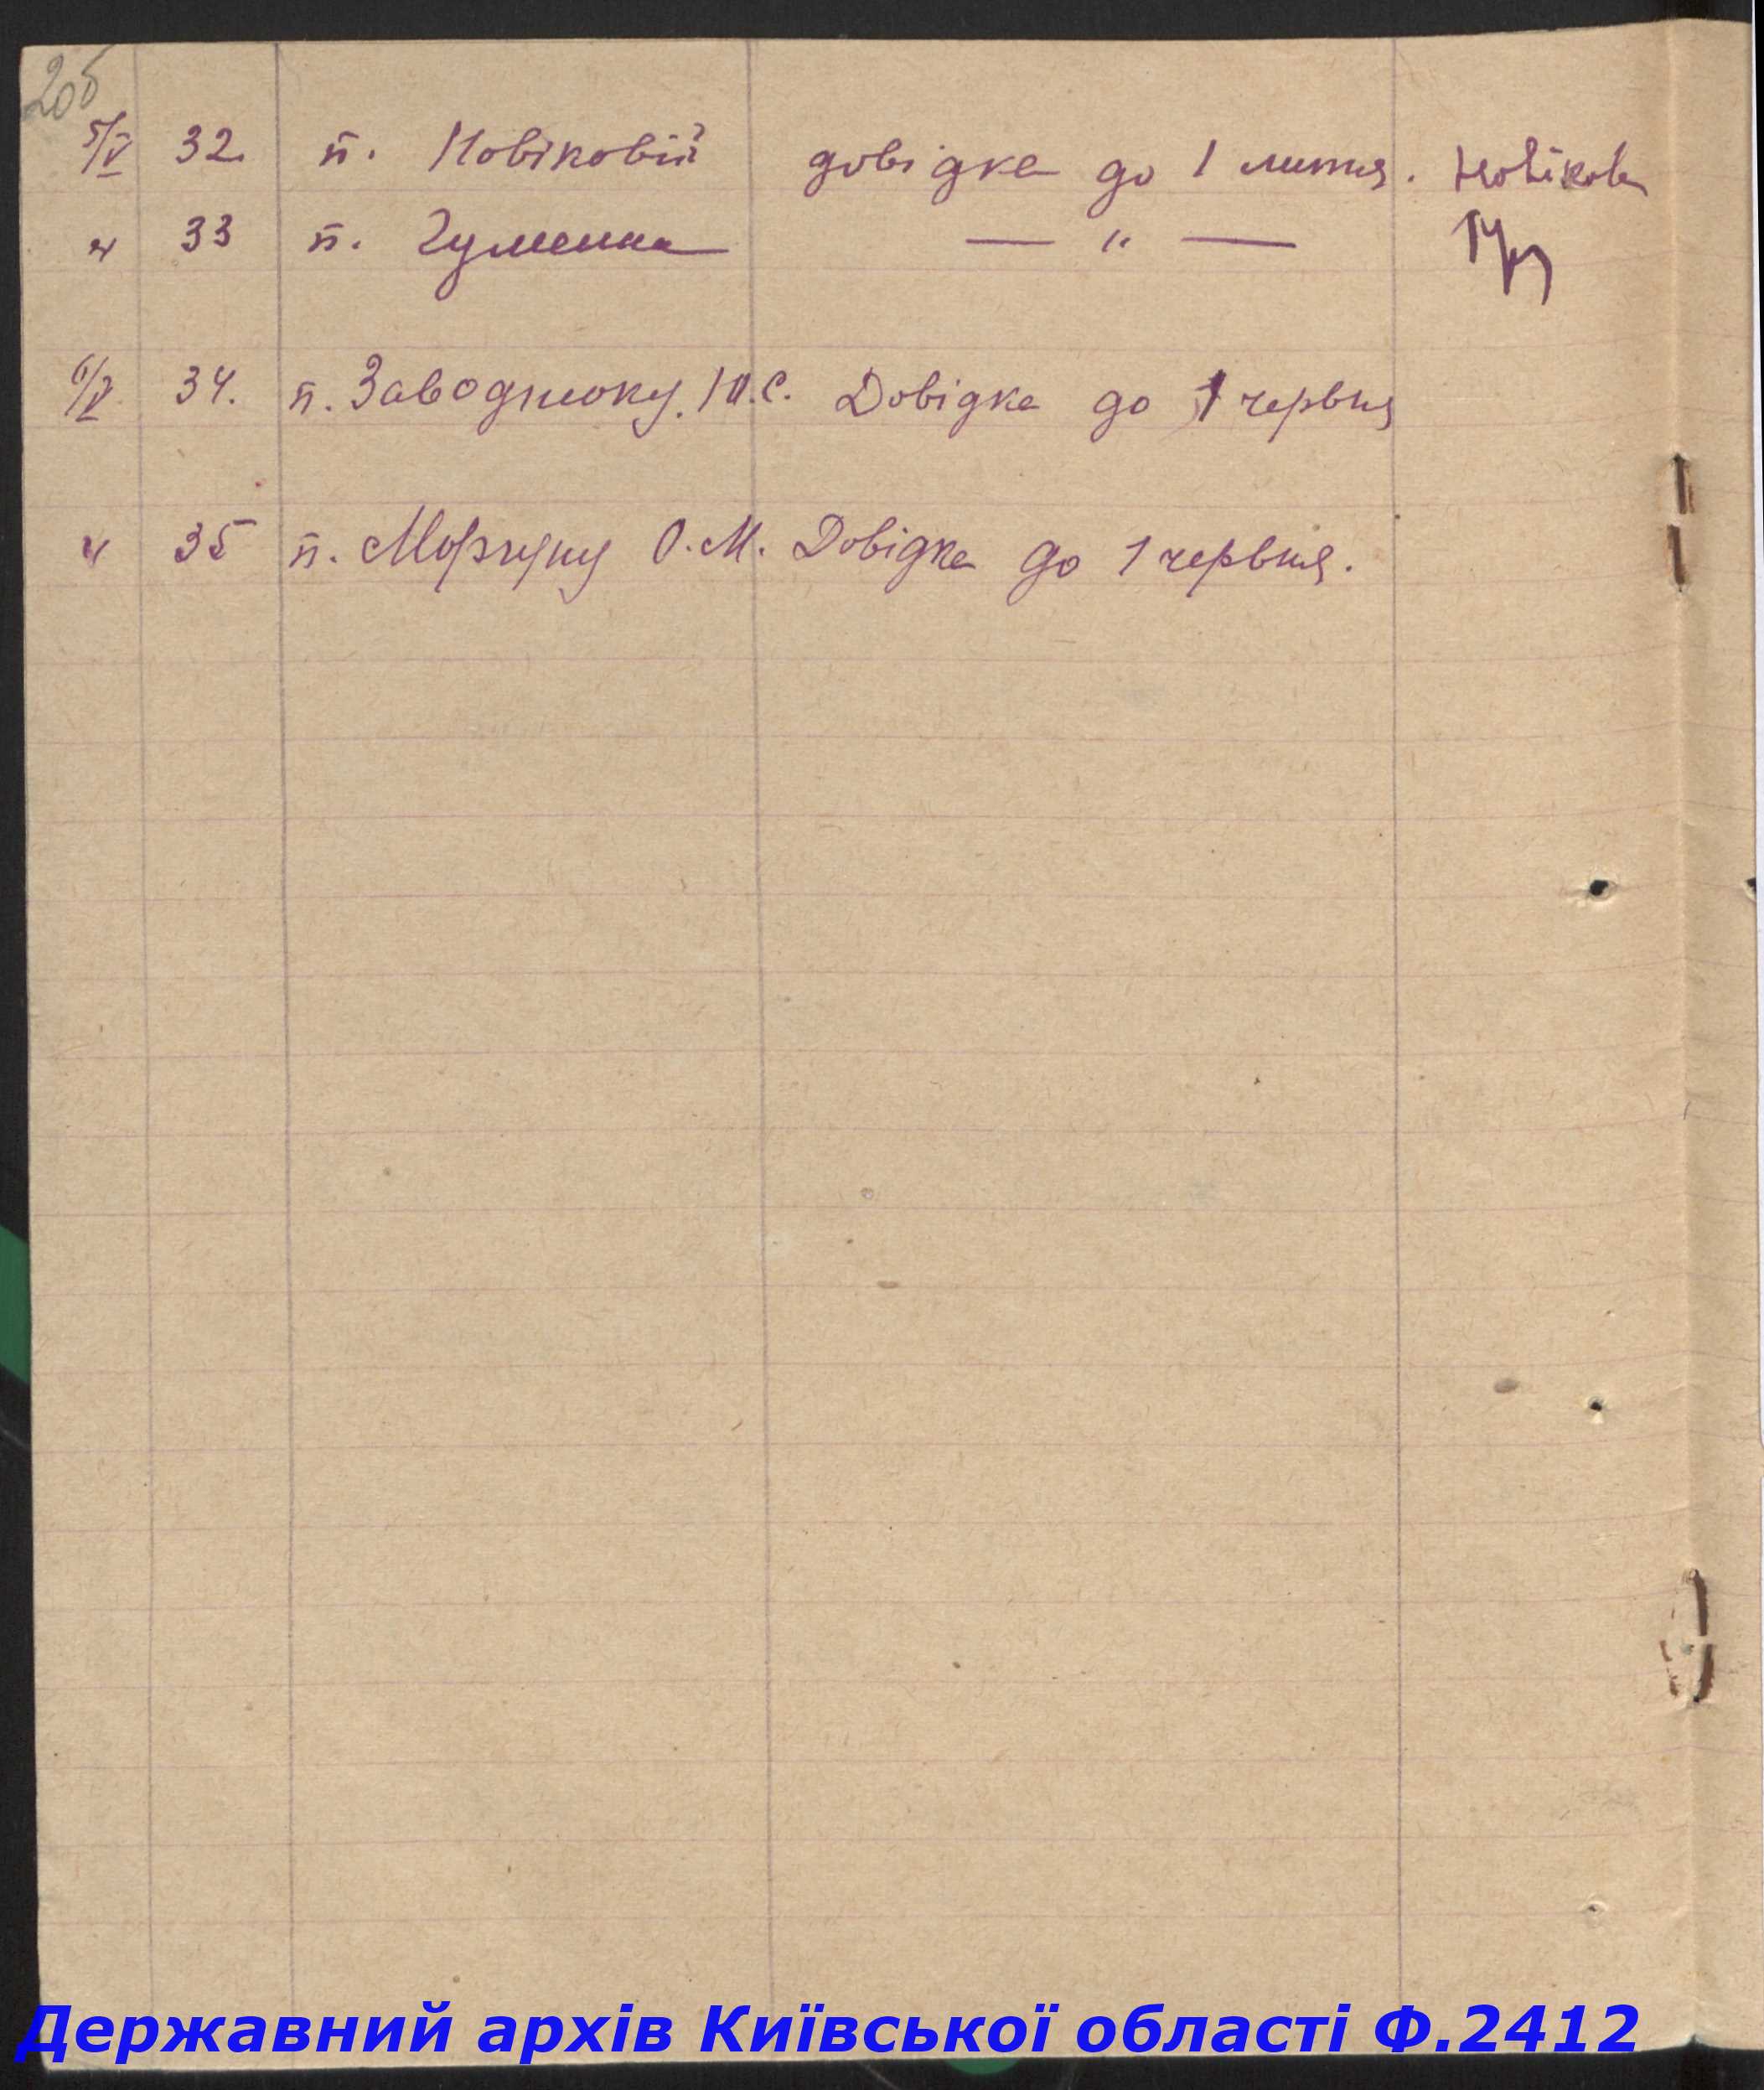 20б
5/V 32. п. Новіковій довідка до 1 липня. Новікова
" 33 п. Гуменна — " —
6/V 34. п. Заводнюку. Ю.С. Довідка до 1 червня
" 35 п. О.М. Довідка до 1 червня.
Державний архів Київської області Ф.2412